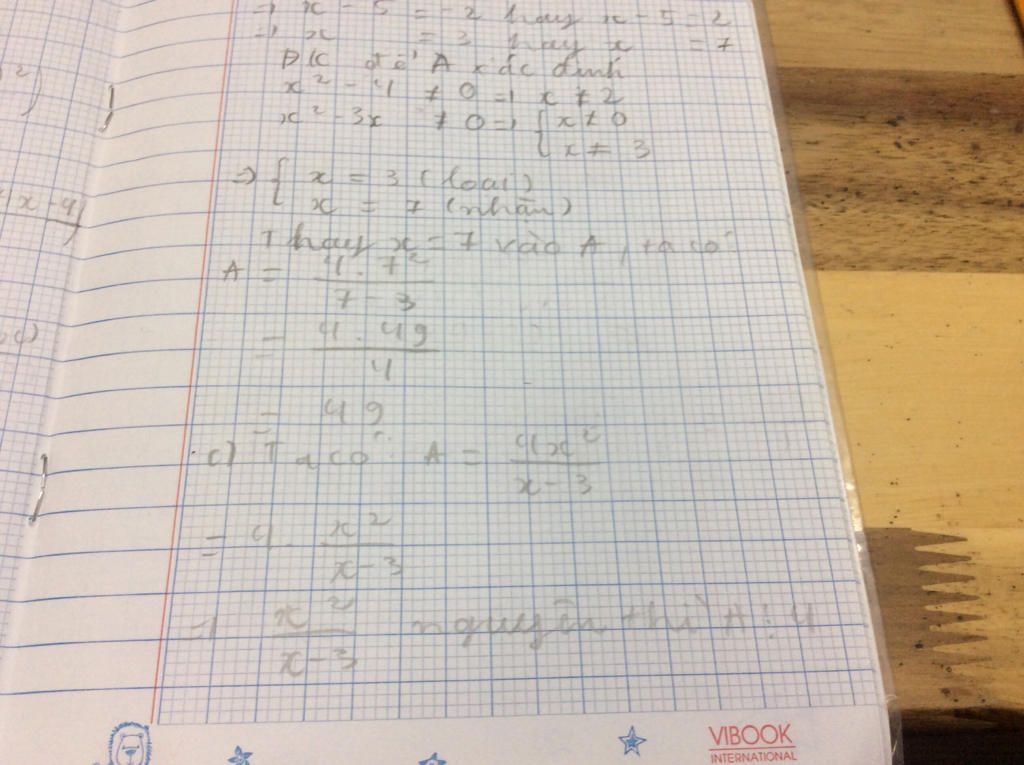 ⇒ x - 5 = -2 hay x - 5 = 2
⇒ x = 3 hay x = 7
ĐK để A xác định
x² - 4 ≠ 0 ⇒ x ≠ 2
x² - 3x ≠ 0 ⇒ { x ≠ 0
x ≠ 3
⇒ { x = 3 (loại)
x = 7 (nhận)
Thay x = 7 vào A, ta có
A = 4 . 7² / 7 - 3
= 4 . 49 / 4
= 49
c) Ta có: A = 4x² / x - 3
= 4 . x² / x - 3
⇒ x² / x - 3 nguyên thì A ⋮ 4
VIBOOK
INTERNATIONAL
²)
x - 4)